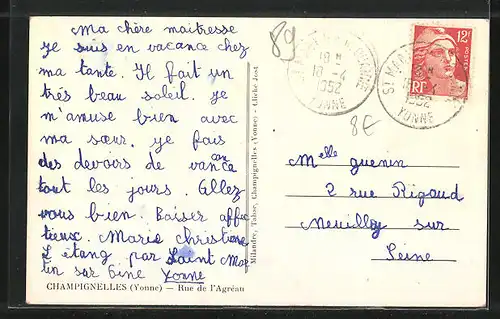 Ma chère maitresse
je suis en vacance chez
ma tante. Il fait un
très beau soleil. je
m'amuse bien avec
ma sœur. je fais
des devoirs de vancan
tout les jours. Allez
vous bien. Baiser affec
tieux. Marie Christine
L'étang par Saint Mar
tin sur Yonne
CHAMPIGNELLES (Yonne) — Rue de l'Agréau
Milandre, Tabac, Champignelles (Yonne) - Cliché Jost
89
18 H
10-4
1952
YONNE
8E
12F
RF
ST MAR
1952
YONNE
Melle guenin
2 rue Rigaud
Neuilly sur
Seine